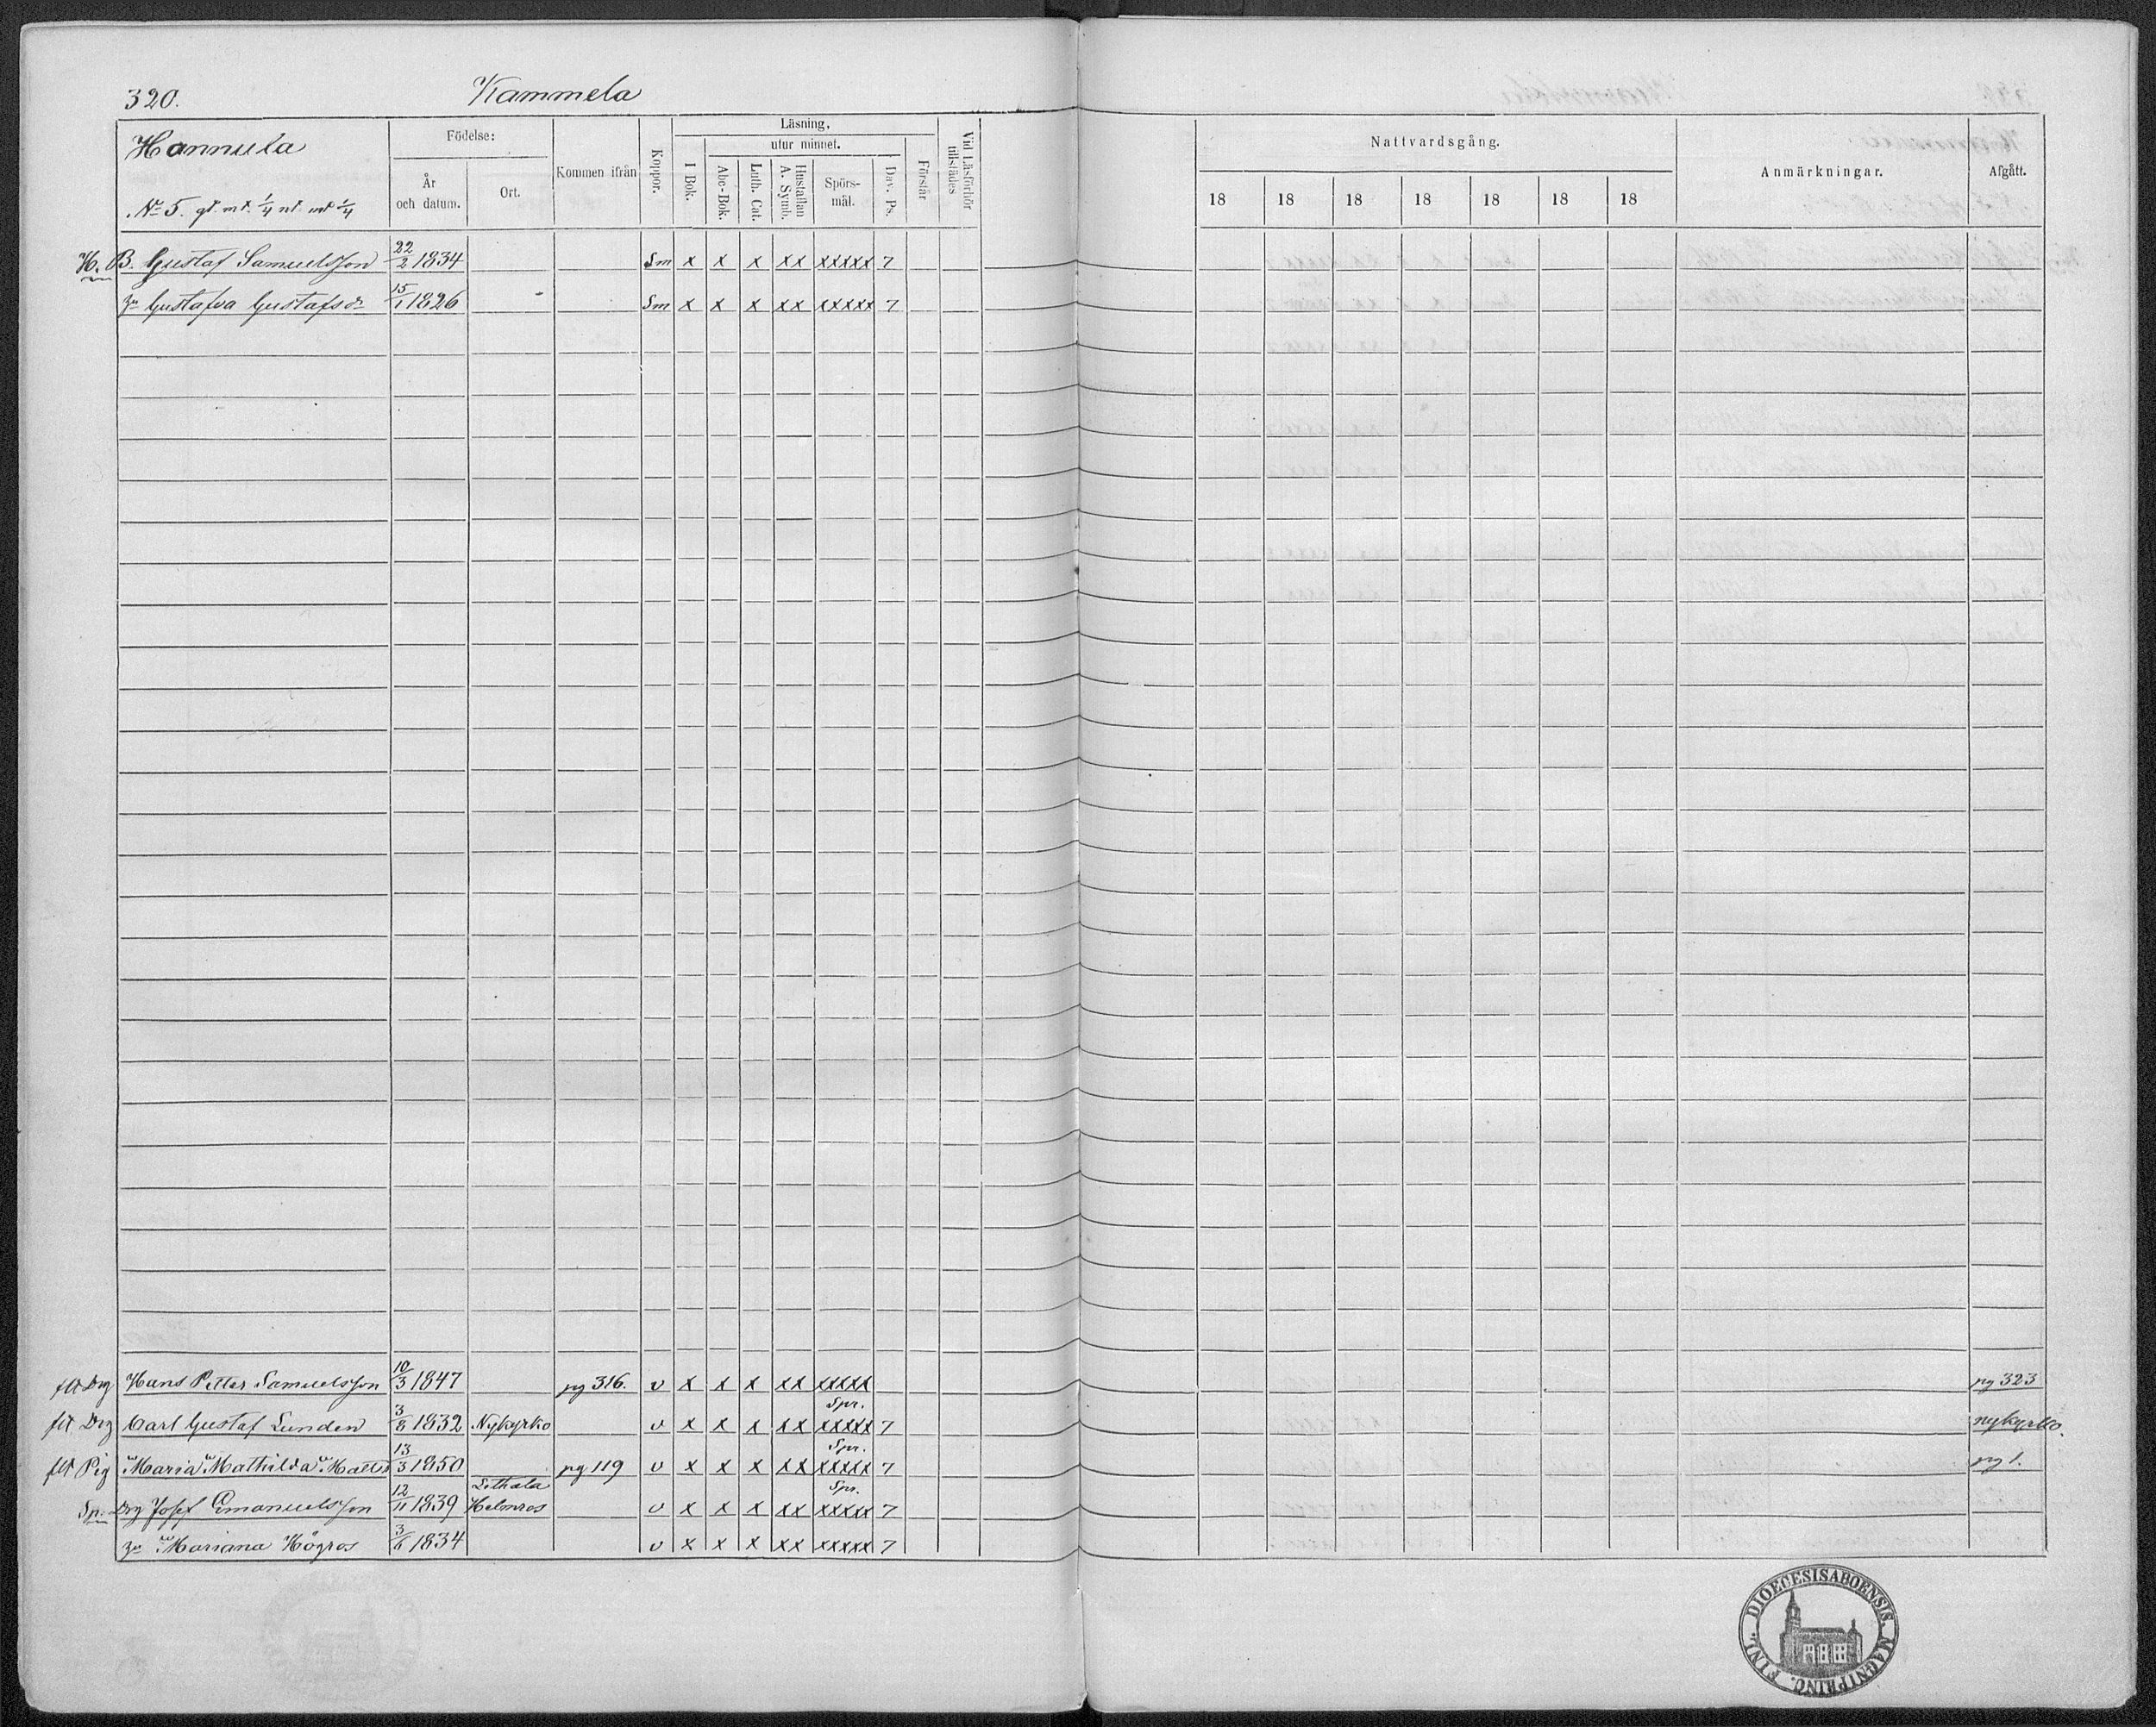 320. Kammela
Hannula
No 5. gt. mt. 1/4 nt. mt 1/4
Födelse:
År och datum.
Ort.
Kommen ifrån
Koppor.
Läsning,
I Bok.
utur minnet.
Abc-Bok.
Luth. Cat.
Hustaflan A. Symb.
Spörsmål.
Dav. Ps.
Förstår
Vid Läsförhör tillstädes
Nattvardsgång.
18 18 18 18 18 18 18
Anmärkningar.
Afgått.
H. B. Gustaf Samuelsson 22/2 1834 Sm x x x xx xxxxx 7
Gustafva Gustafsdr 15/1 1826 Sm x x x xx xxxxx 7
flt Drg Hans Petter Samuelsson 10/3 1847 pg 316. v x x x xx xxxxx pg 323
Spr.
flt Drg Carl Gustaf Lunden 3/8 1832 Nykyrko v x x x xx xxxxx 7 nykyrko.
Spr.
flt Pig Maria Mathilda Mattsd 13/3 1850 pg 119 v x x x xx xxxxx 7 pg 1.
Lethala Spr.
Sp. Drg Josef Emanuelsson 12/11 1839 Helmros v x x x xx xxxxx 7
Mariana Högros 3/6 1834 v x x x xx xxxxx 7
DIOECESIS ABOENSIS. MAGNI PRINC. FINL.